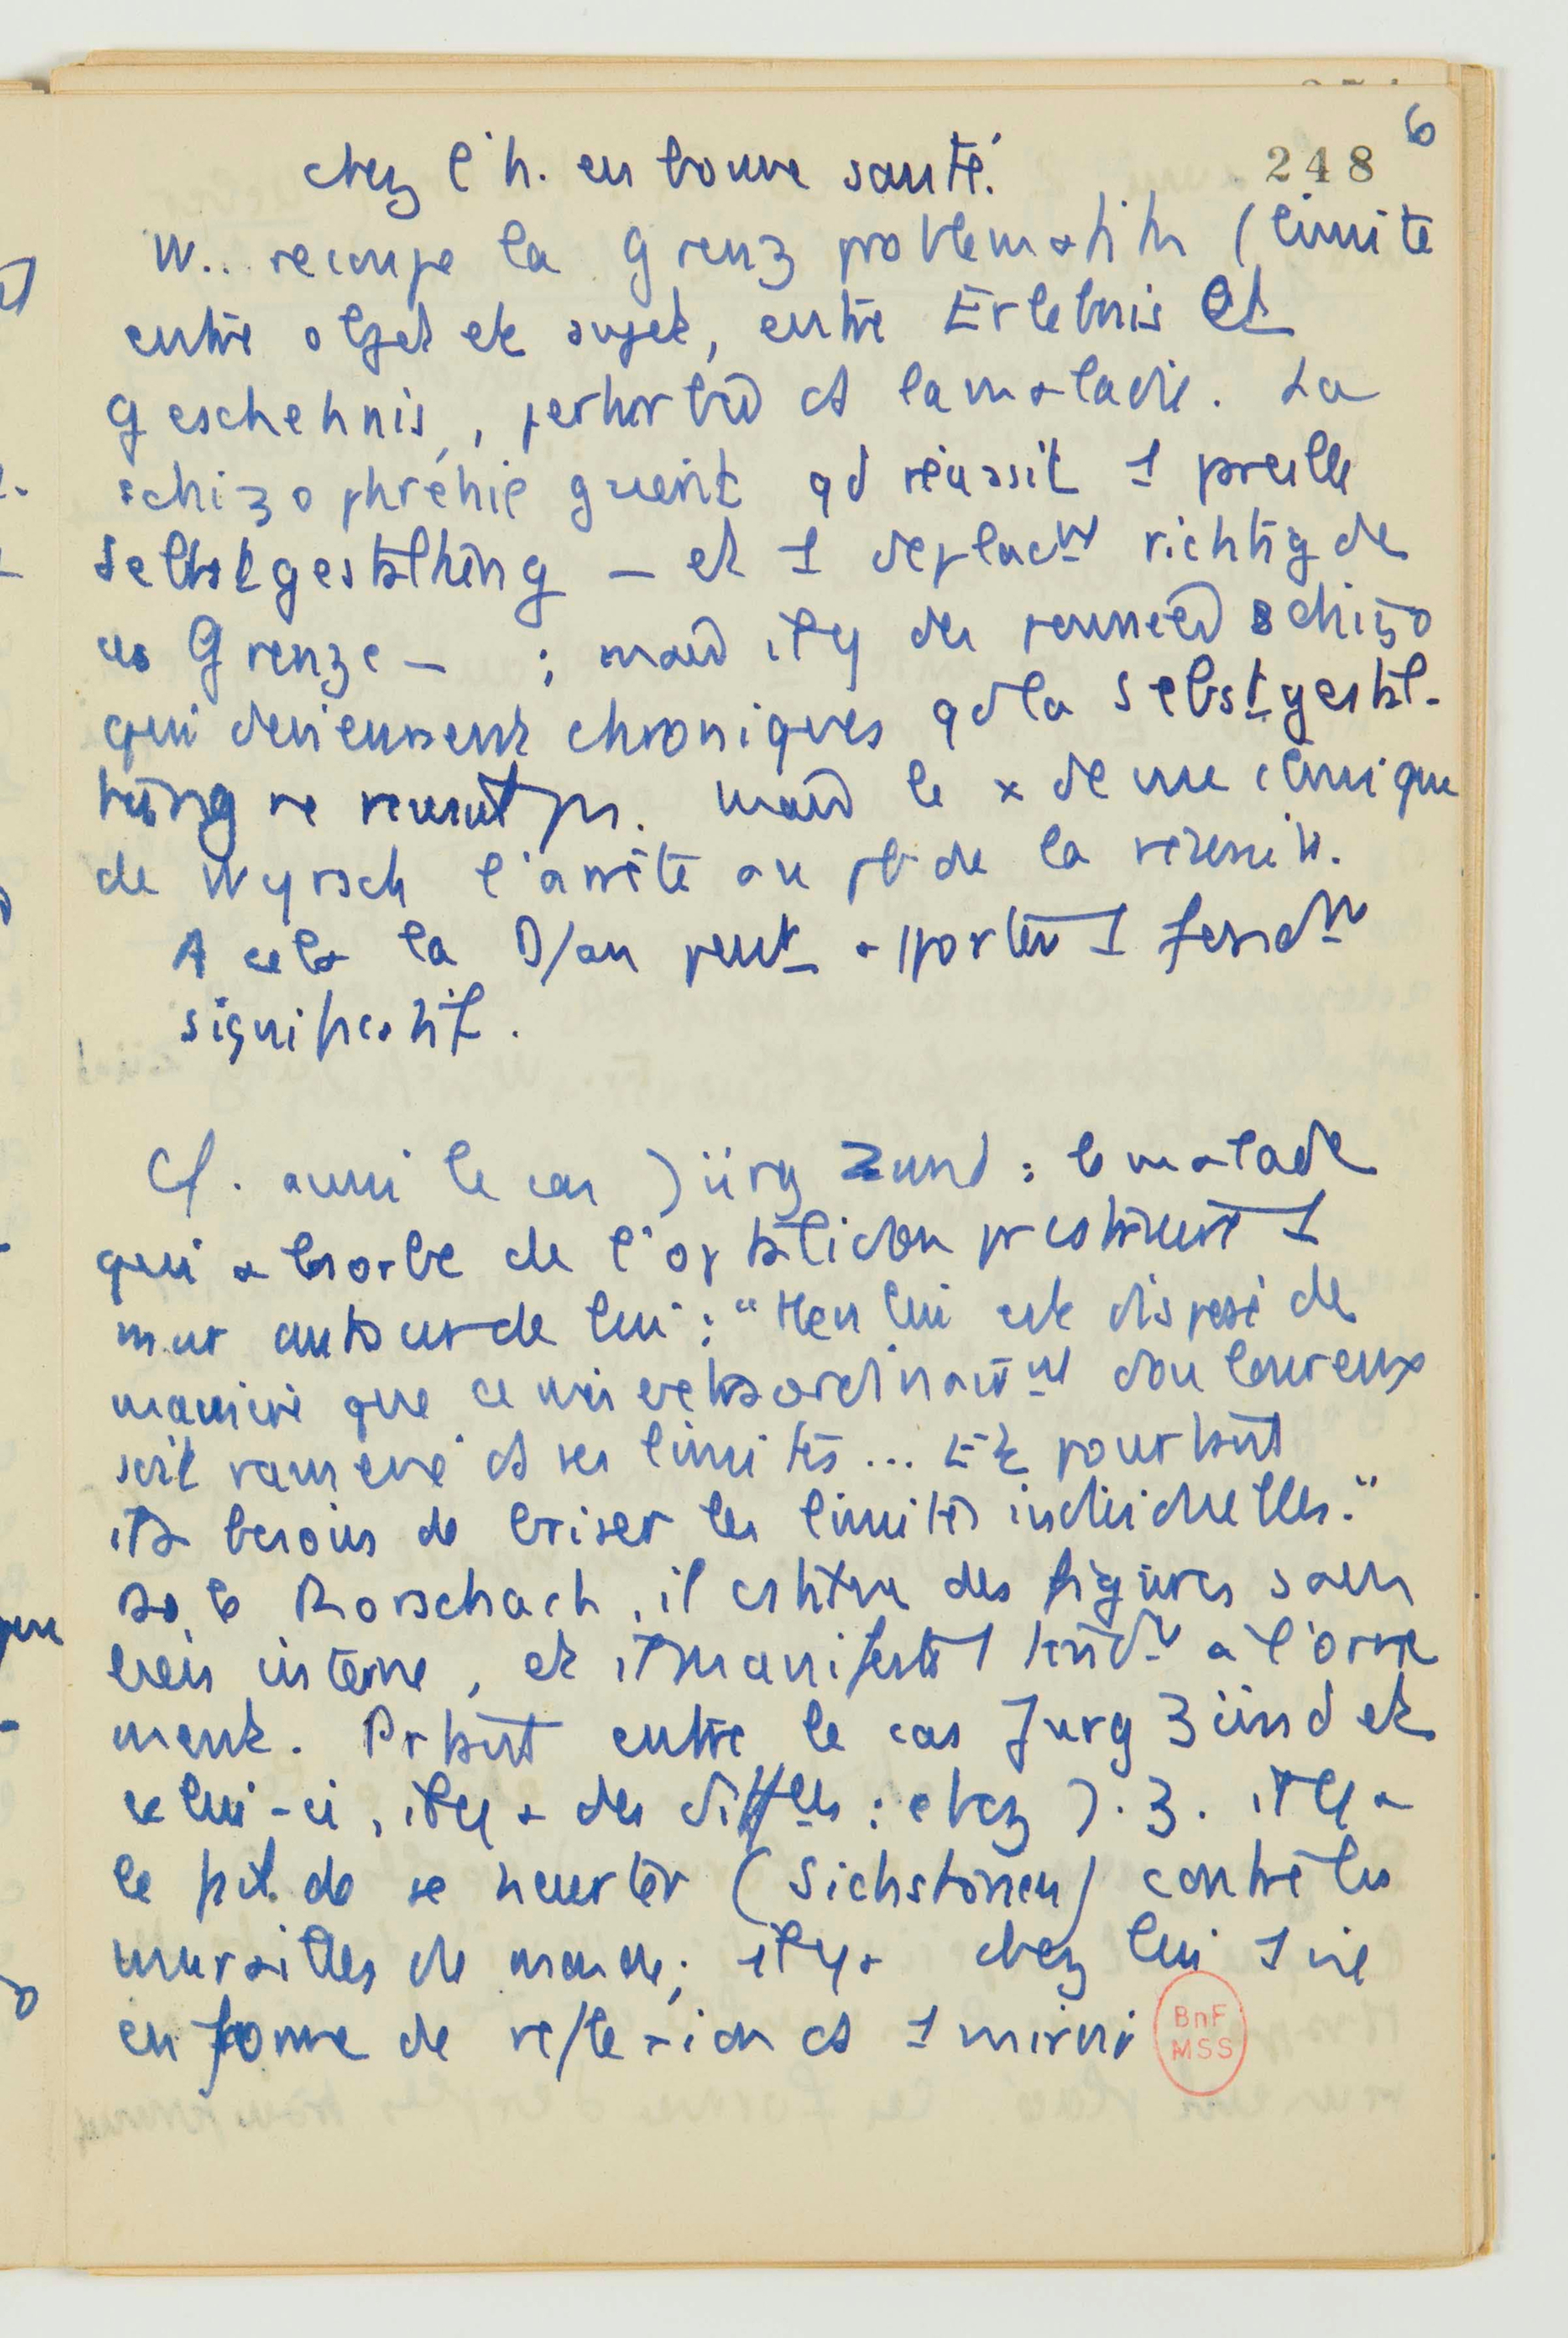 6
248
chez l'h. en bonne santé.
W.. recoupe la Grenzproblematik (limite
entre objet et sujet, entre Erlebnis et
Geschehnis, et la maladie. La
schizophrénie guérit qd réussit 1
Selbstgestaltung — et 1 déplacnt richtig de
Grenze — ; mais il y des schizo
qui deviennent chroniques qd la Selbstgestal-
tung ne réussit pas. Mais le x de vue clinique
de Wyrsch l'arrête au pb de la
A cela la D/an peut apporter 1
significatif.
Cf. aussi le cas Jürg Zund : le malade
qui absorbe de l'optalidon 1
mur autour de lui : "Rien lui est disposé de
manière que ce moi extraordinairnt douloureux
soit ramené à ses limites... Et pourtant
il a besoin de briser les limites individuelles."
Ds le Rorschach, il des figures sans
lien interne, et il manifeste 1 tendce à l'orne
ment. Prtant entre le cas Jurg Zünd et
celui-ci, il y a des diffces : chez J. Z. il y a
le fait de se heurter (Sichstossen) contre les
murailles du monde; il y a chez lui 1 vie
en forme de reflexion à 1 miroir
BnF
MSS